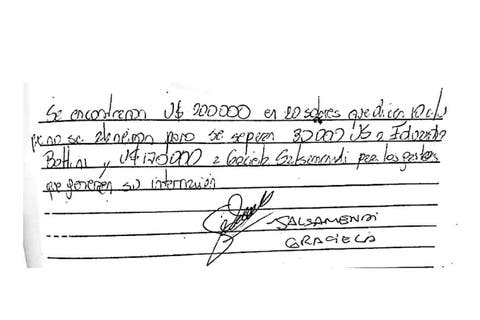 Se encontraron U$ 200000 en 20 sobres que dicen 10 c/u
no se abrieron pero se separan 30000 U$ a Eduardo
Bottini y U$ 170000 a Graciela Salsamendi por los gastos
que generen su internación
SALSAMENDI
GRACIELA